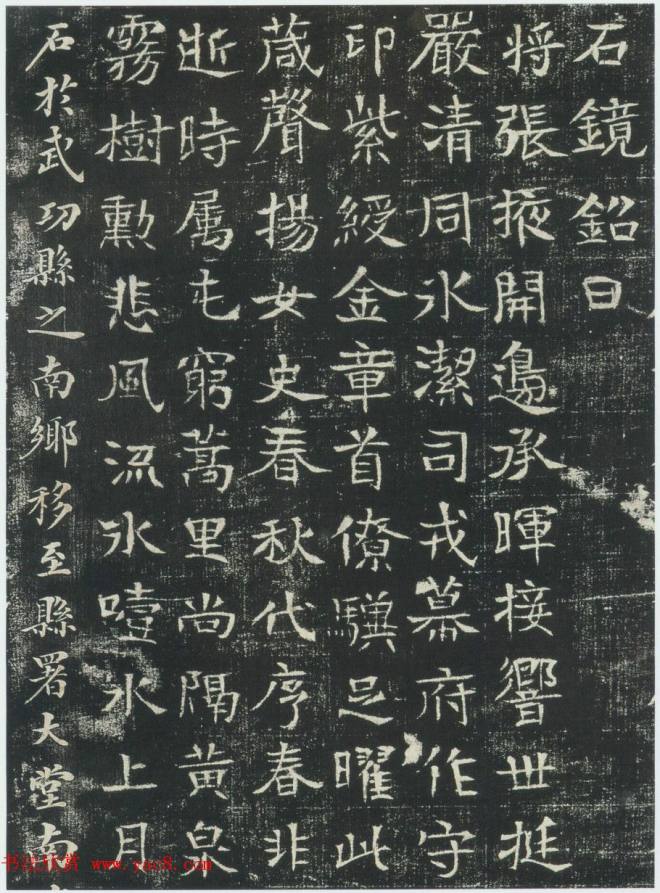 石鏡銘曰
将張掖開邊承暉接響丗挺
嚴清同氷潔司戎幕府作守
印紫綬金章首僚驥足曜此
葴聲揚女史春秋代序春非
逝時属屯窮蒿里尚隔黄泉
霧樹勳悲風流氷噎水上月
石於武功縣之南鄉移至縣署大堂南
书法欣赏 www.yac8.com